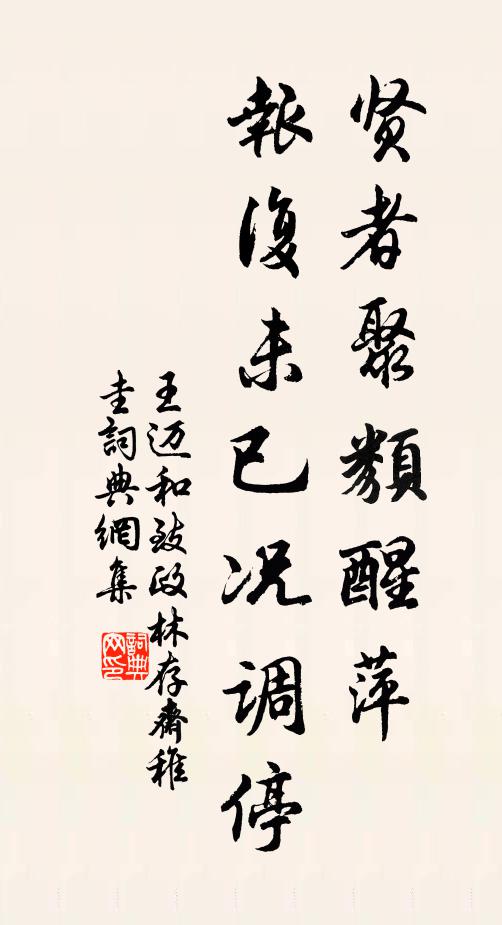 贤者聚類醒萍
報復未已况调停
王迈和致政林存齋稚
圭詞典網集
詞典網印